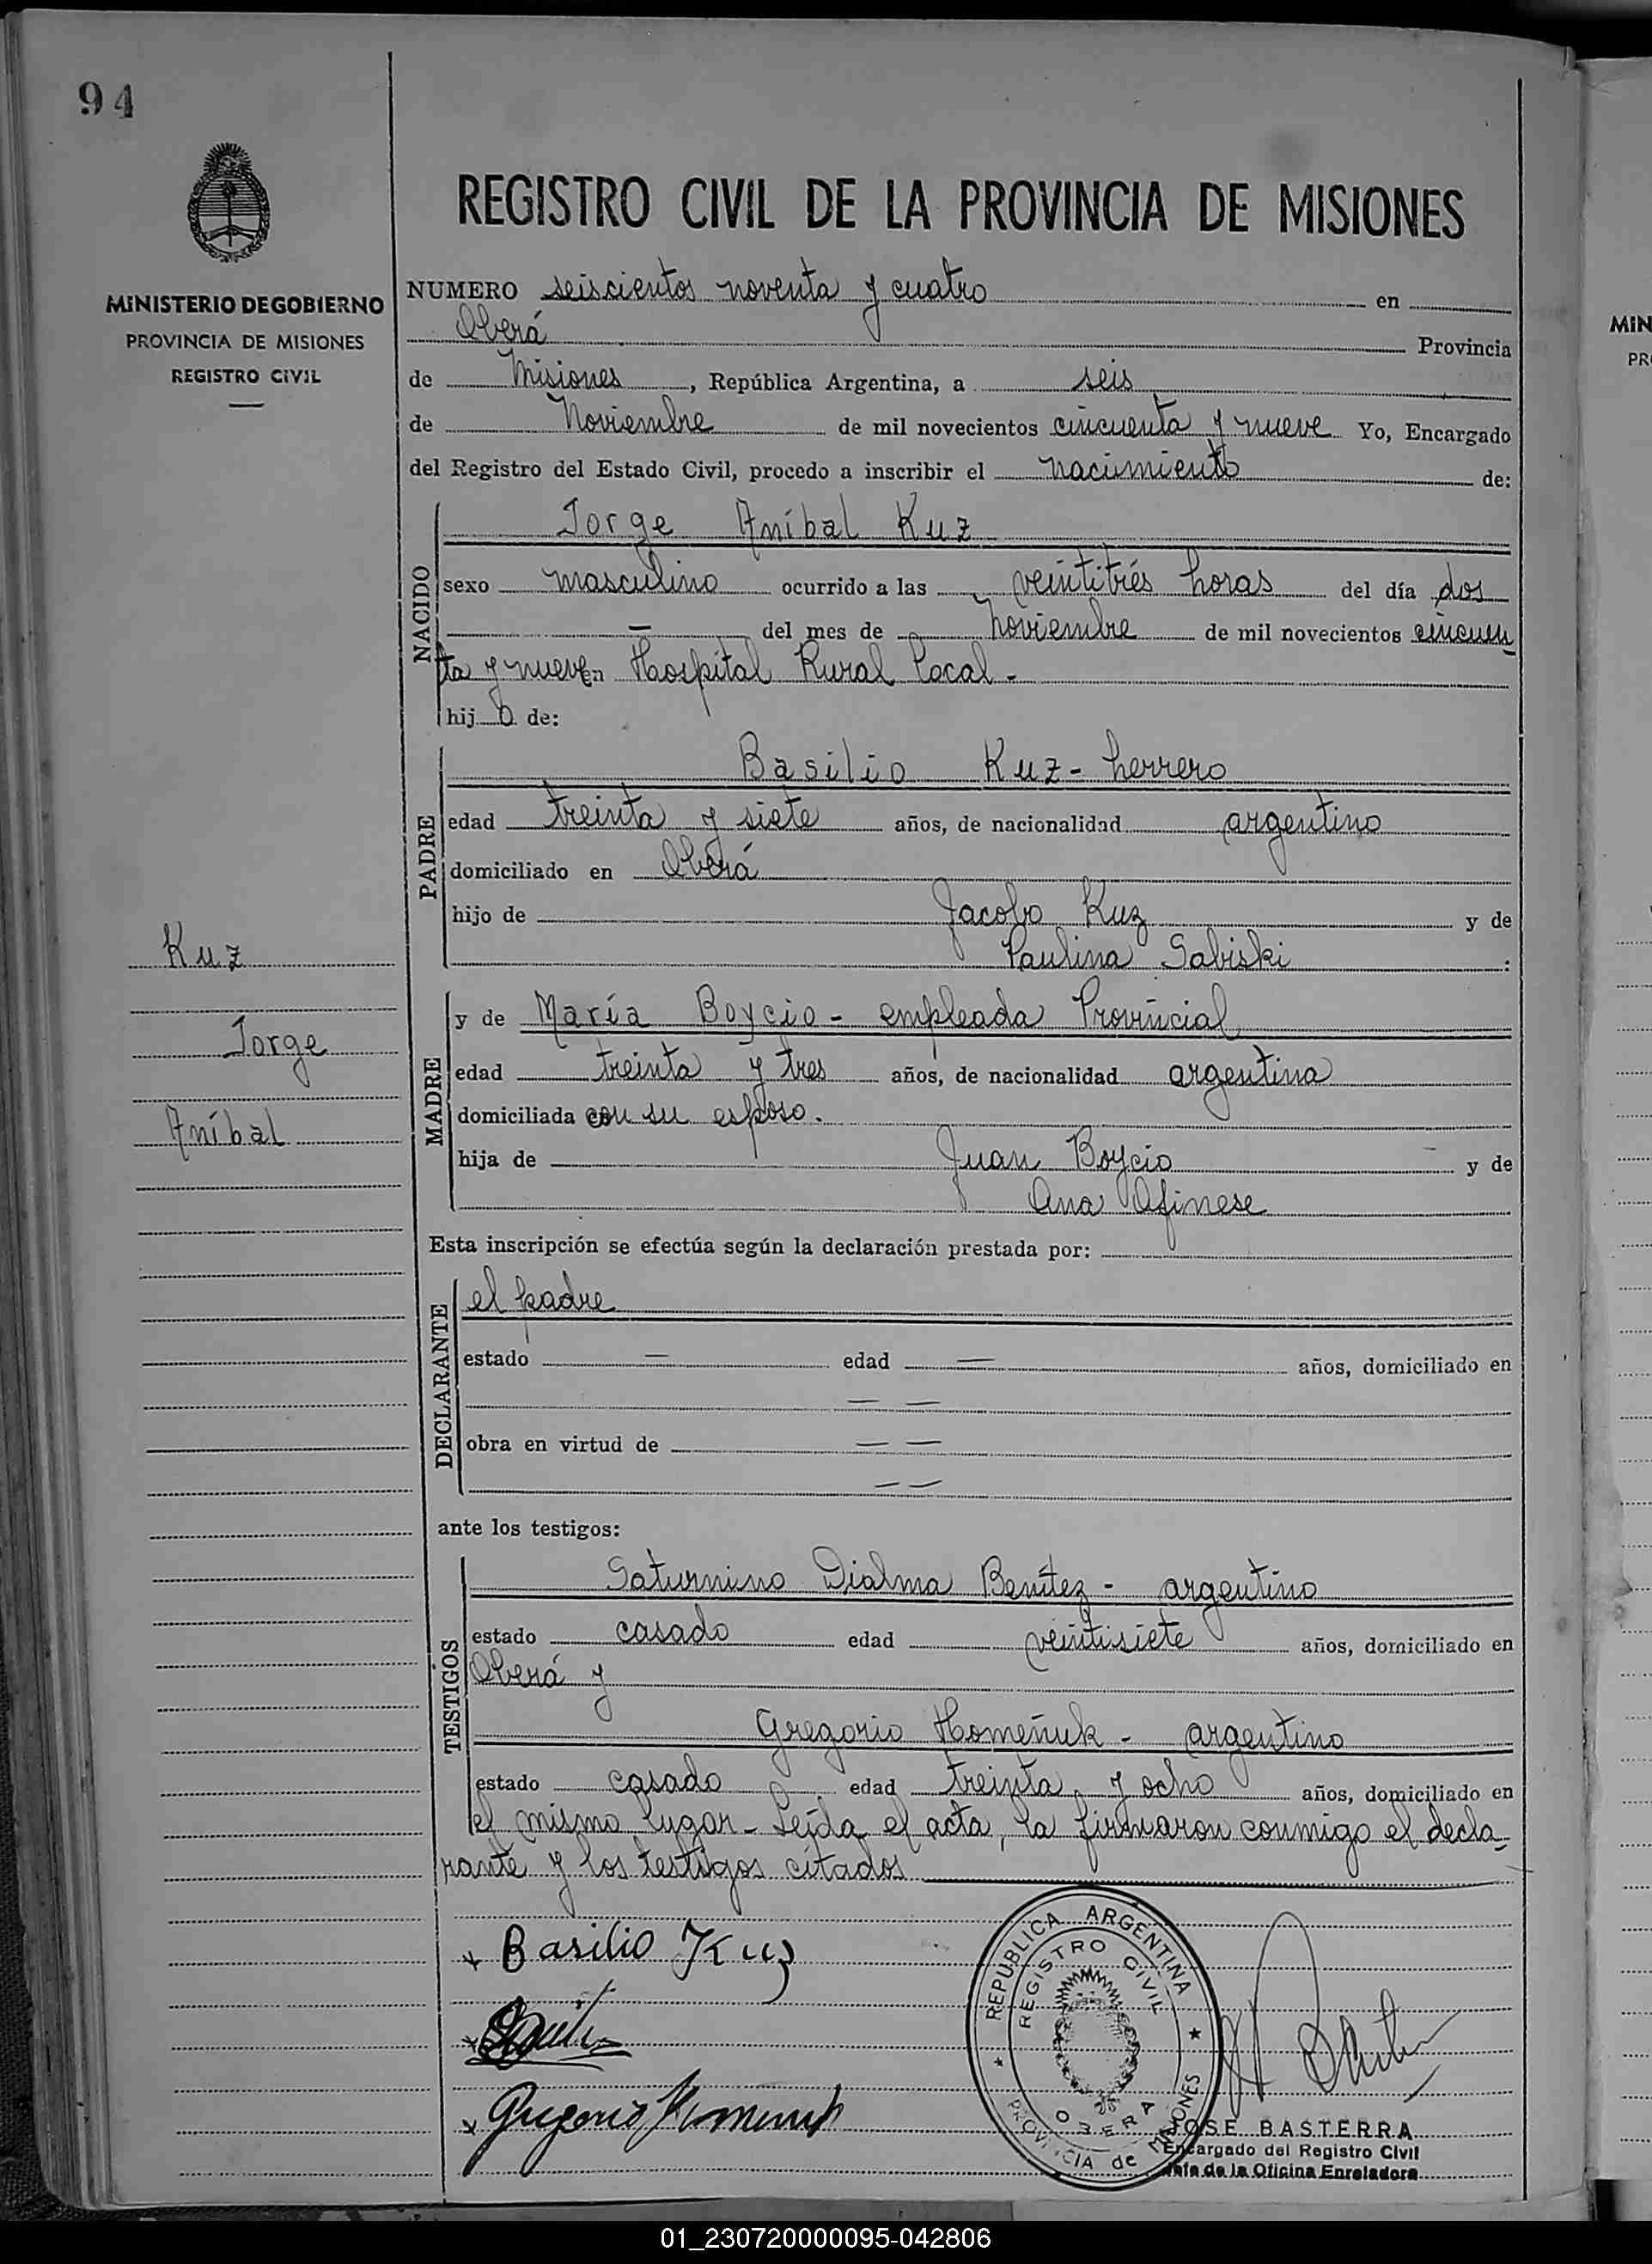 94
MINISTERIO DE GOBIERNO
PROVINCIA DE MISIONES
REGISTRO CIVIL
REGISTRO CIVIL DE LA PROVINCIA DE MISIONES
NUMERO seiscientos noventa y cuatro en
Oberá Provincia
de Misiones, República Argentina, a seis
de Noviembre de mil novecientos cincuenta y nueve Yo, Encargado
del Registro del Estado Civil, procedo a inscribir el nacimiento de:
NACIDO
Jorge Aníbal Kuz
sexo masculino ocurrido a las veintitrés horas del día dos
— del mes de Noviembre de mil novecientos cincuen
ta y nueve en Hospital Rural Local.-
hijo de:
PADRE
Basilio Kuz - herrero
edad treinta y siete años, de nacionalidad argentino
domiciliado en Oberá
hijo de Jacobo Kuz y de
Paulina Sabiski :
MADRE
y de María Boycio - empleada Provincial
edad treinta y tres años, de nacionalidad argentina
domiciliada con su esposo.
hija de Juan Boycio y de
Ana Afinese
Esta inscripción se efectúa según la declaración prestada por:
DECLARANTE
el padre
estado — edad — años, domiciliado en
— —
obra en virtud de — —
— —
ante los testigos:
TESTIGOS
Saturnino Dialma Benítez - argentino
estado casado edad veintisiete años, domiciliado en
Oberá y
Gregorio Homeñuk - argentino
estado casado edad treinta y ocho años, domiciliado en
el mismo lugar - Leída el acta, la firmaron conmigo el decla-
rante y los testigos citados
Kuz
Jorge
Aníbal
x Basilio Kuz
x
x Gregorio Homeñuk
REPUBLICA ARGENTINA
REGISTRO CIVIL
OBERA
PROVINCIA de MISIONES
JOSE BASTERRA
Encargado del Registro Civil
Jefe de la Oficina Enroladora
MIN
PR
01_230720000095-042806